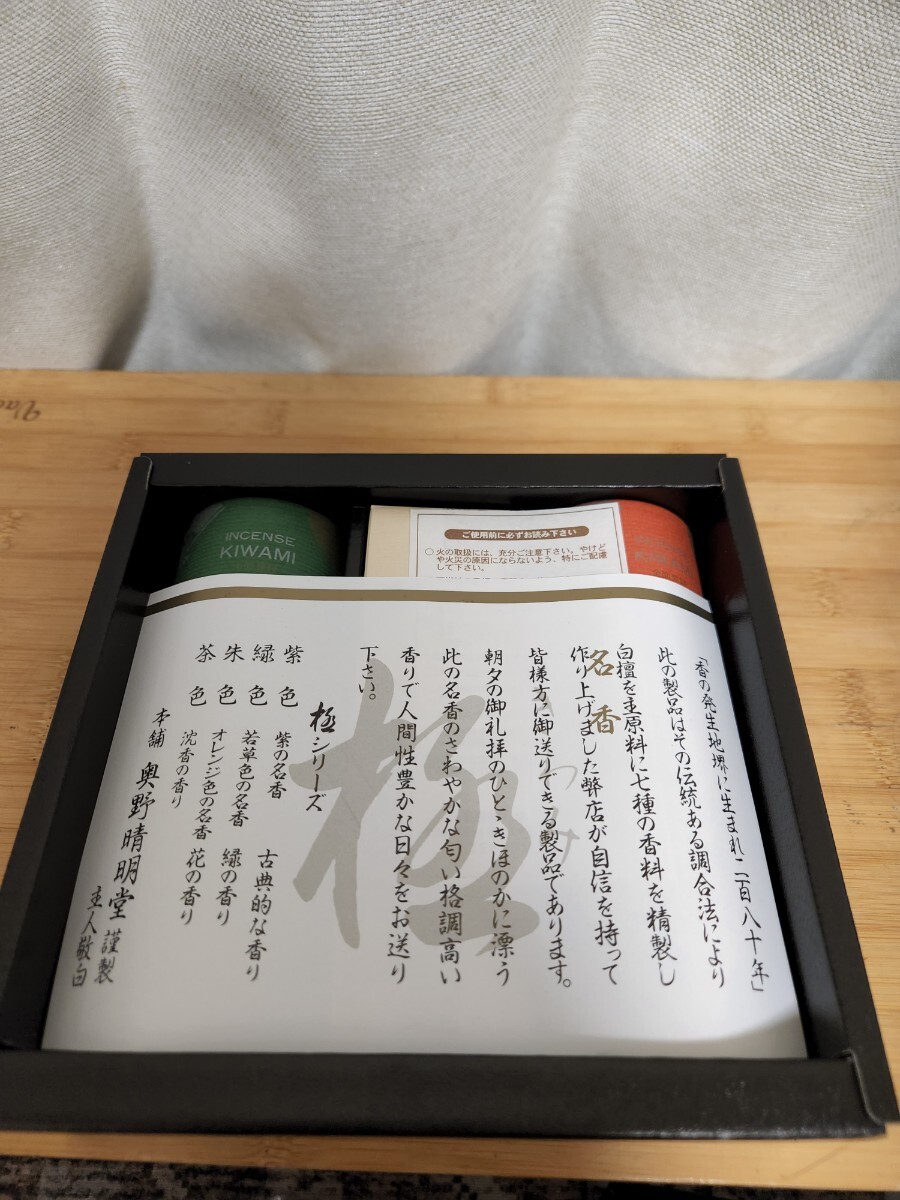 INCENSE
KIWAMI
ご使用前に必ずお読み下さい
○火の取扱には、充分ご注意下さい。やけど
や火災の原因にならないよう、特にご配慮
して下さい。
名香
極
「香の発生地堺に生まれ二百八十年」
此の製品はその伝統ある調合法により
白檀を主原料に七種の香料を精製し
作り上げました弊店が自信を持って
皆様方に御送りできる製品であります。
朝夕の御礼拝のひとゝきほのかに漂う
此の名香のさわやかな匂い格調高い
香りで人間性豊かな日々をお送り
下さい。
極シリーズ
紫色 紫の名香 古典的な香り
緑色 若草色の名香 緑の香り
朱色 オレンジ色の名香 花の香り
茶色 沈香の香り
本舗 奥野晴明堂 謹製
主人敬白